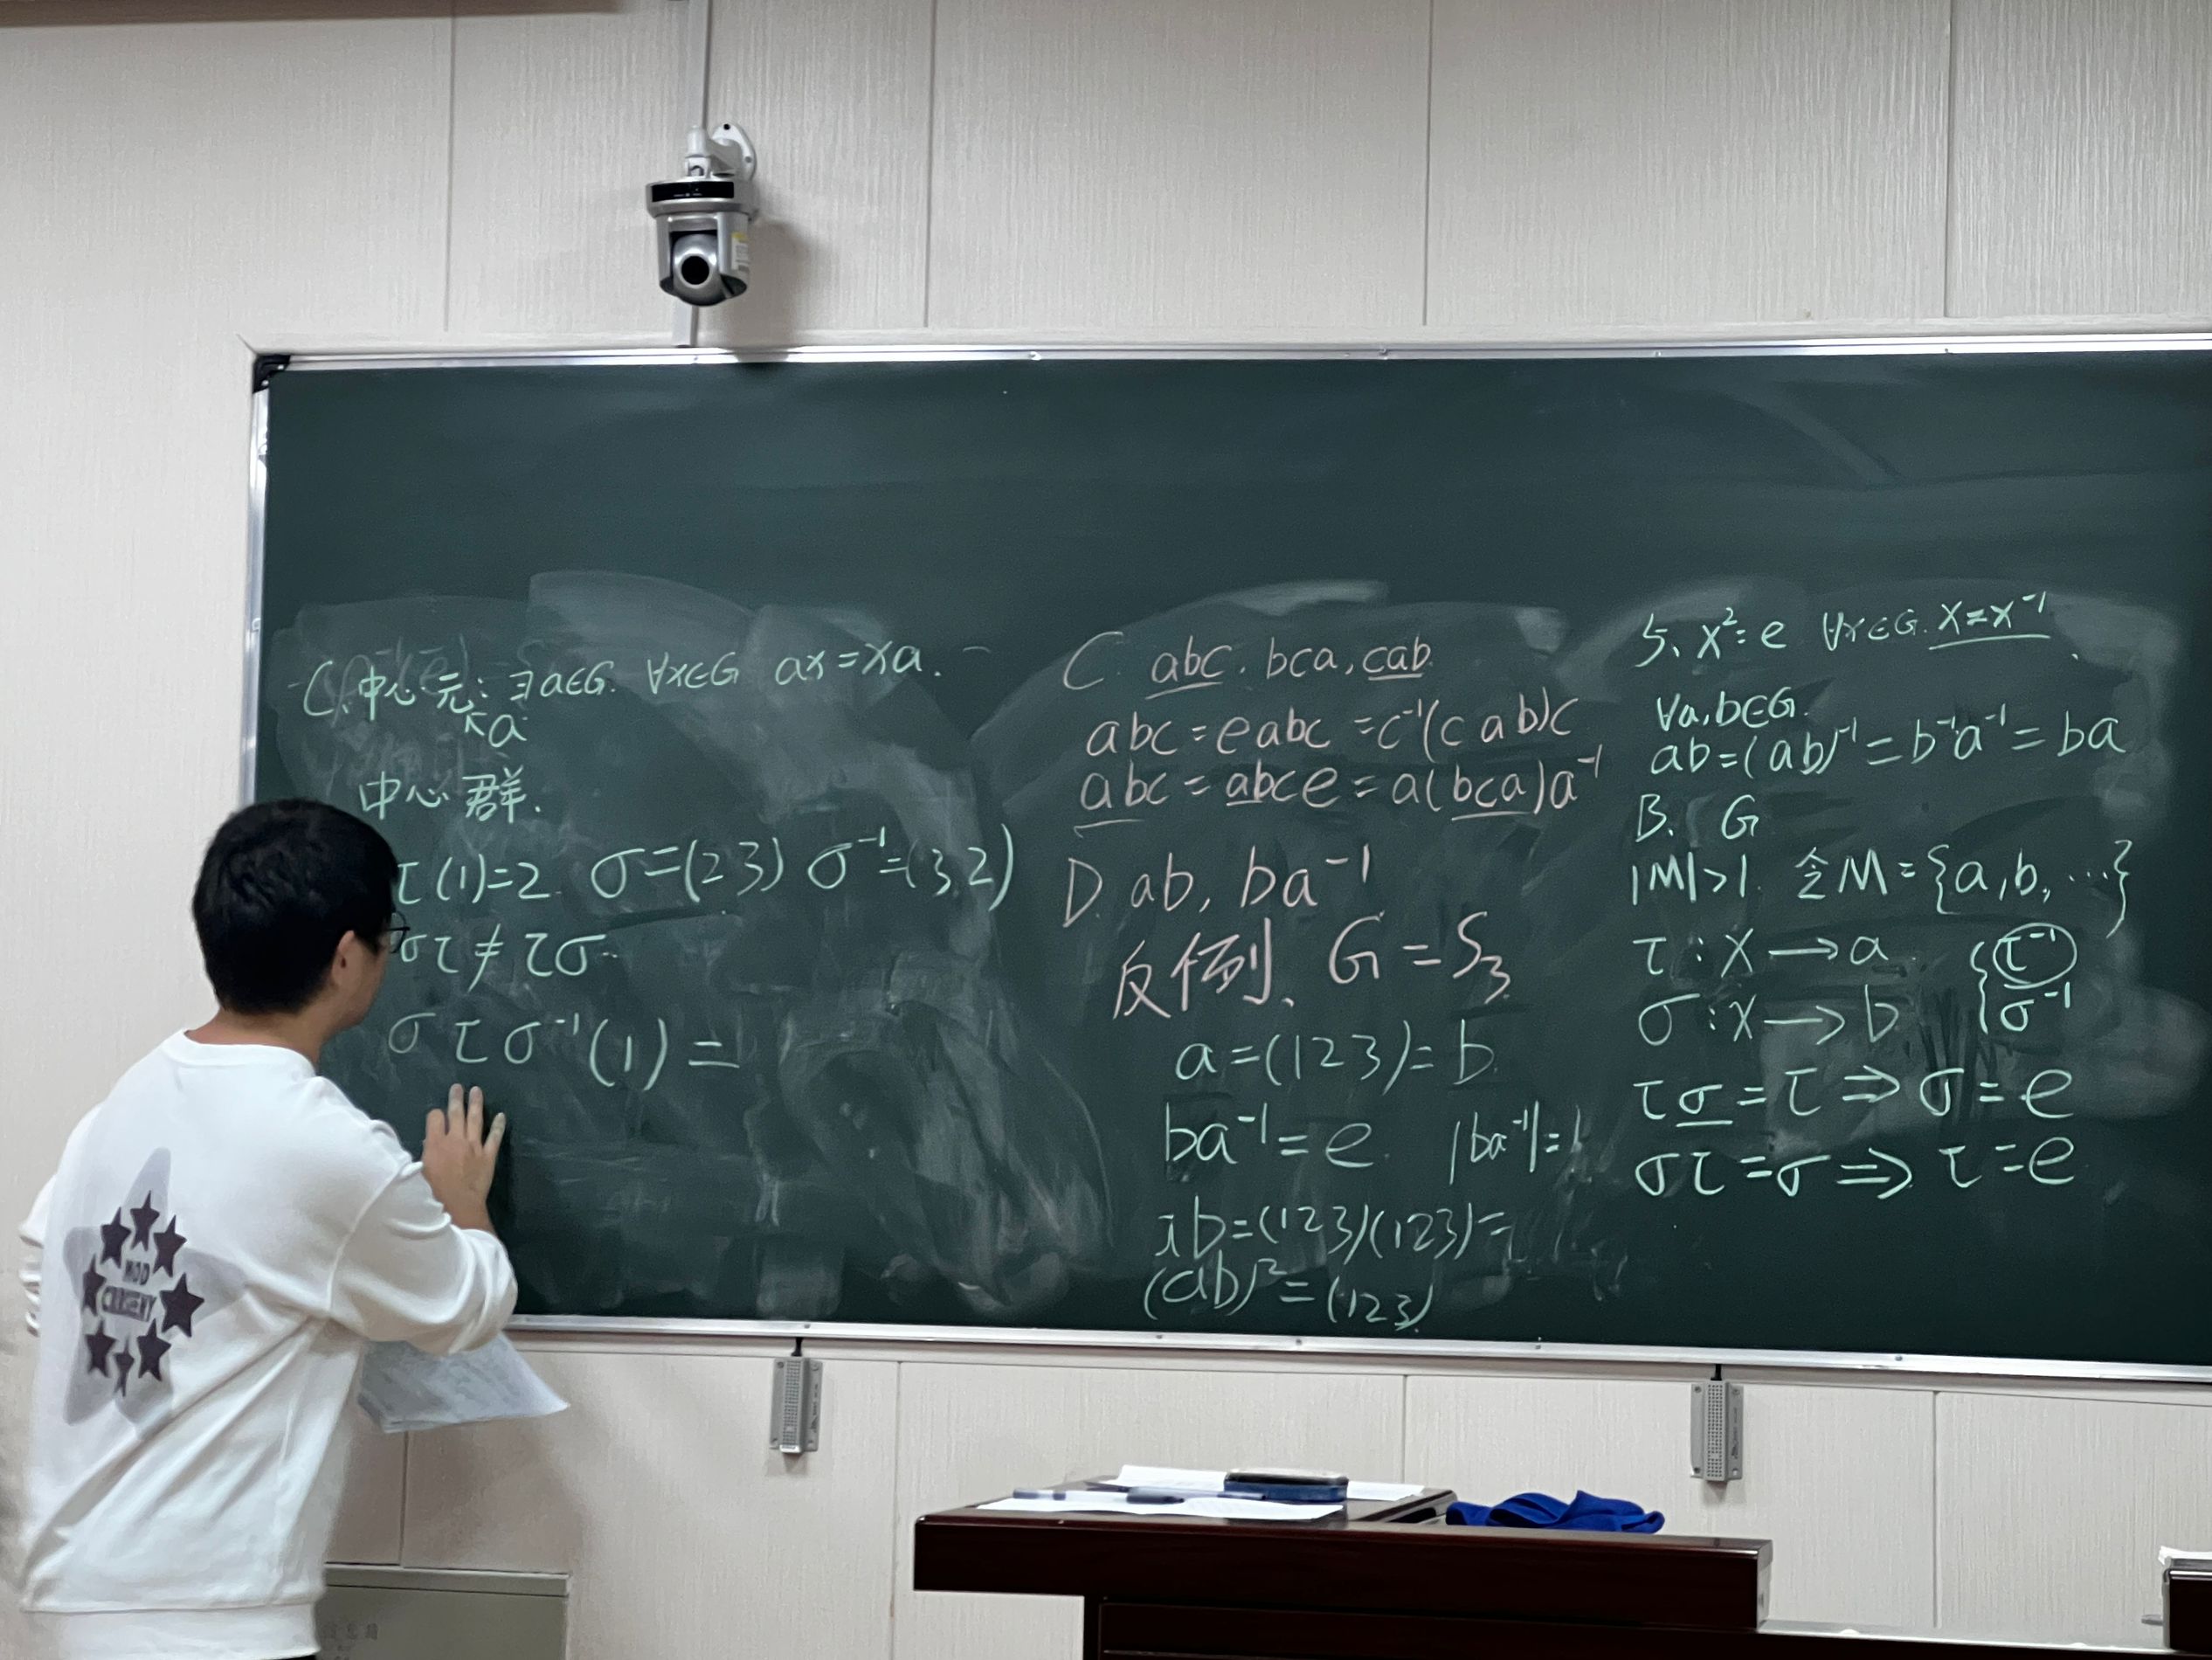 C. 中心元: ∃a∈G. ∀x∈G ax=xa.
↖a
中心群.
τ(1)=2. σ=(23) σ⁻¹=(3,2)
στ≠τσ.
στσ⁻¹(1)=
C. abc. bca, cab.
abc=eabc=c⁻¹(cab)c
abc=abce=a(bca)a⁻¹
D. ab, ba⁻¹
反例、G=S₃
a=(123)=b.
ba⁻¹=e. |ba⁻¹|=1
ab=(123)(123)=
(ab)²=(123)
5、x²=e ∀x∈G. x=x⁻¹.
∀a,b∈G.
ab=(ab)⁻¹=b⁻¹a⁻¹=ba
B. G
|M|>1. 令M={a,b,…}
τ:x→a {τ⁻¹
σ:x→b σ⁻¹
τσ=τ⇒σ=e
στ=σ⇒τ=e
MOD